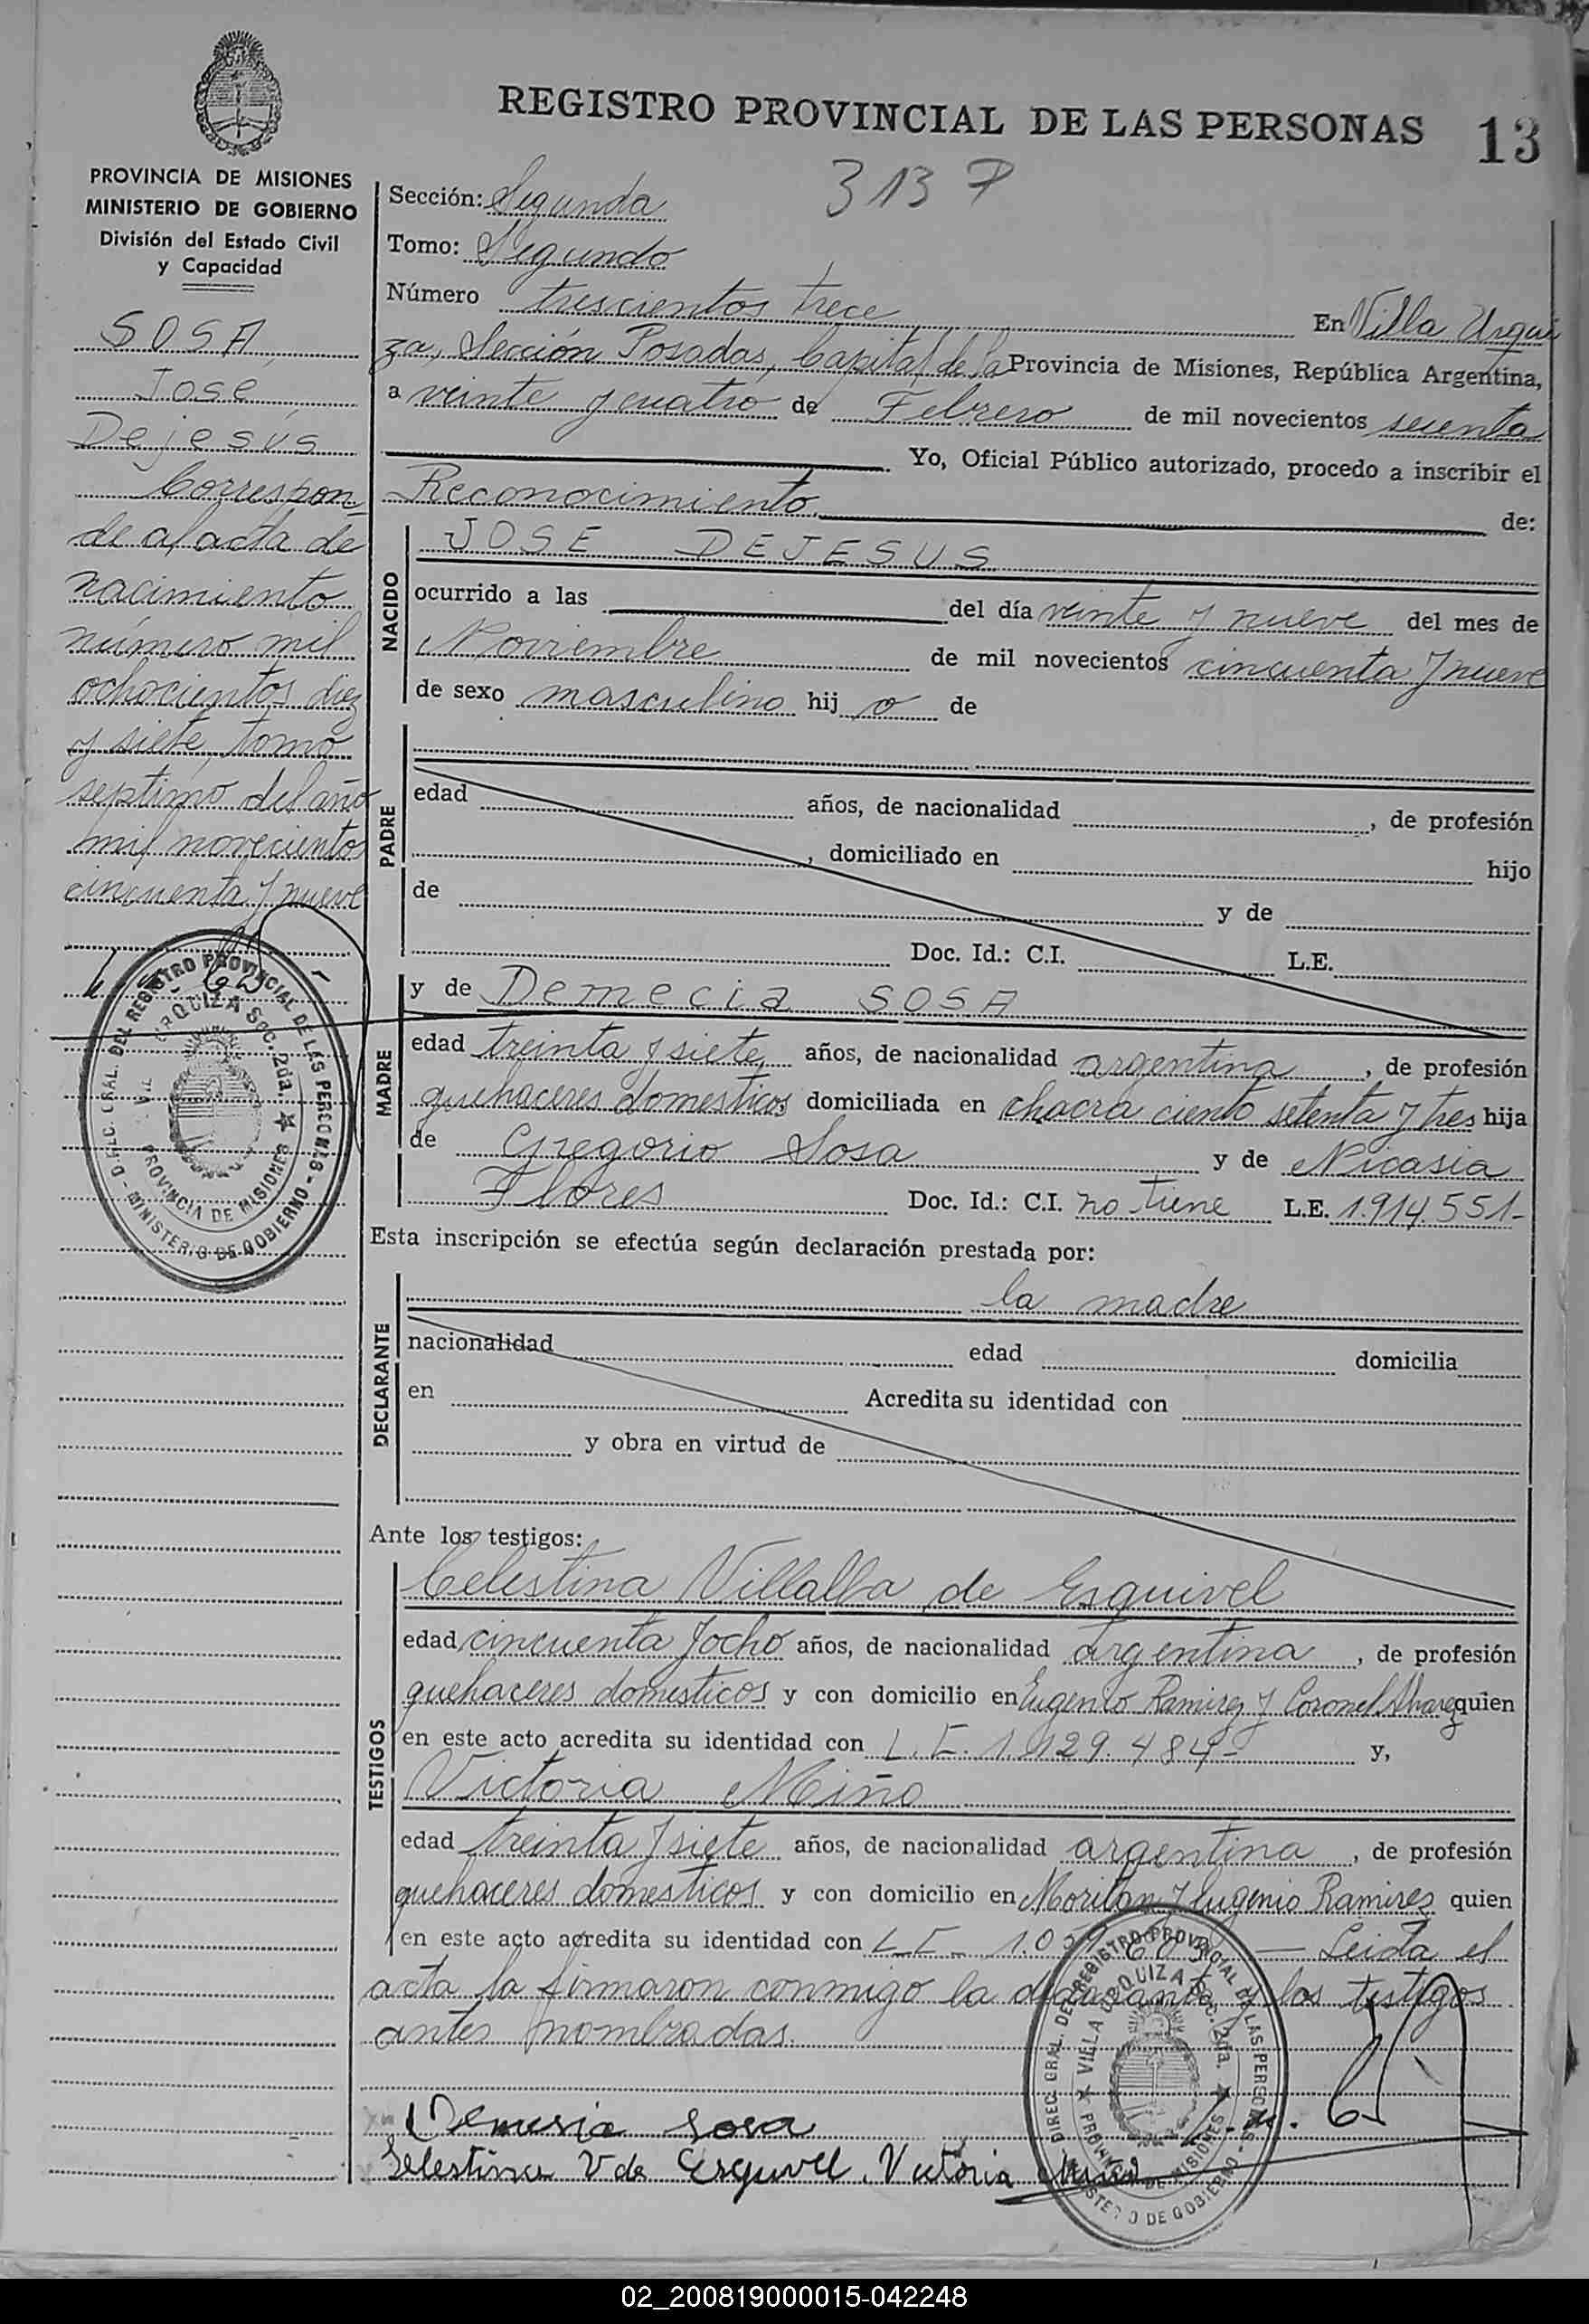 REGISTRO PROVINCIAL DE LAS PERSONAS 13
3137
PROVINCIA DE MISIONES
MINISTERIO DE GOBIERNO
División del Estado Civil
y Capacidad
SOSA,
José
Dejesús
Correspon-
de al acta de
nacimiento
número mil
ochocientos diez
y siete, tomo
septimo del año
mil novecientos
cincuenta y nueve
DIREC. GRAL. DEL REGISTRO PROVINCIAL DE LAS PERSONAS - MINISTERIO DE GOBIERNO
URQUIZA Sec. 2da. ★ PROVINCIA DE MISIONES
Sección: Segunda
Tomo: Segundo
Número trescientos trece En Villa Urqui
za, Sección Posadas, Capital de la Provincia de Misiones, República Argentina,
a veinte y cuatro de Febrero de mil novecientos sesenta
Yo, Oficial Público autorizado, procedo a inscribir el
Reconocimiento de:
NACIDO
JOSE DEJESUS
ocurrido a las del día veinte y nueve del mes de
Noviembre de mil novecientos cincuenta y nueve
de sexo masculino hij o de
PADRE
edad años, de nacionalidad , de profesión
, domiciliado en hijo
de y de
Doc. Id.: C.I. L.E.
MADRE
y de Demecia SOSA
edad treinta y siete años, de nacionalidad argentina, de profesión
quehaceres domesticos domiciliada en chacra ciento setenta y tres hija
de Gregorio Sosa y de Nicasia
Flores Doc. Id.: C.I. no tiene L.E. 1.914.551-
Esta inscripción se efectúa según declaración prestada por:
DECLARANTE
la madre
nacionalidad edad domicilia
en Acredita su identidad con
y obra en virtud de
Ante los testigos:
TESTIGOS
Celestina Villalba de Esquivel
edad cincuenta y ocho años, de nacionalidad argentina, de profesión
quehaceres domesticos y con domicilio en Eugenio Ramirez y Coronel Alvarez quien
en este acto acredita su identidad con L.E. 1.129.484- y,
Victoria Miño
edad treinta y siete años, de nacionalidad argentina, de profesión
quehaceres domesticos y con domicilio en Moritan y Eugenio Ramirez quien
en este acto acredita su identidad con L.E. — Leida el
acta la firmaron conmigo la declarante y los testigos
antes nombradas.
Demesia Sosa
Selestina V de Esquivel. Victoria Miño
DIREC. GRAL. DEL REGISTRO PROVINCIAL DE LAS PERSONAS - MINISTERIO DE GOBIERNO
★ VILLA URQUIZA Sec. 2da. ★ PROVINCIA DE MISIONES
02_200819000015-042248